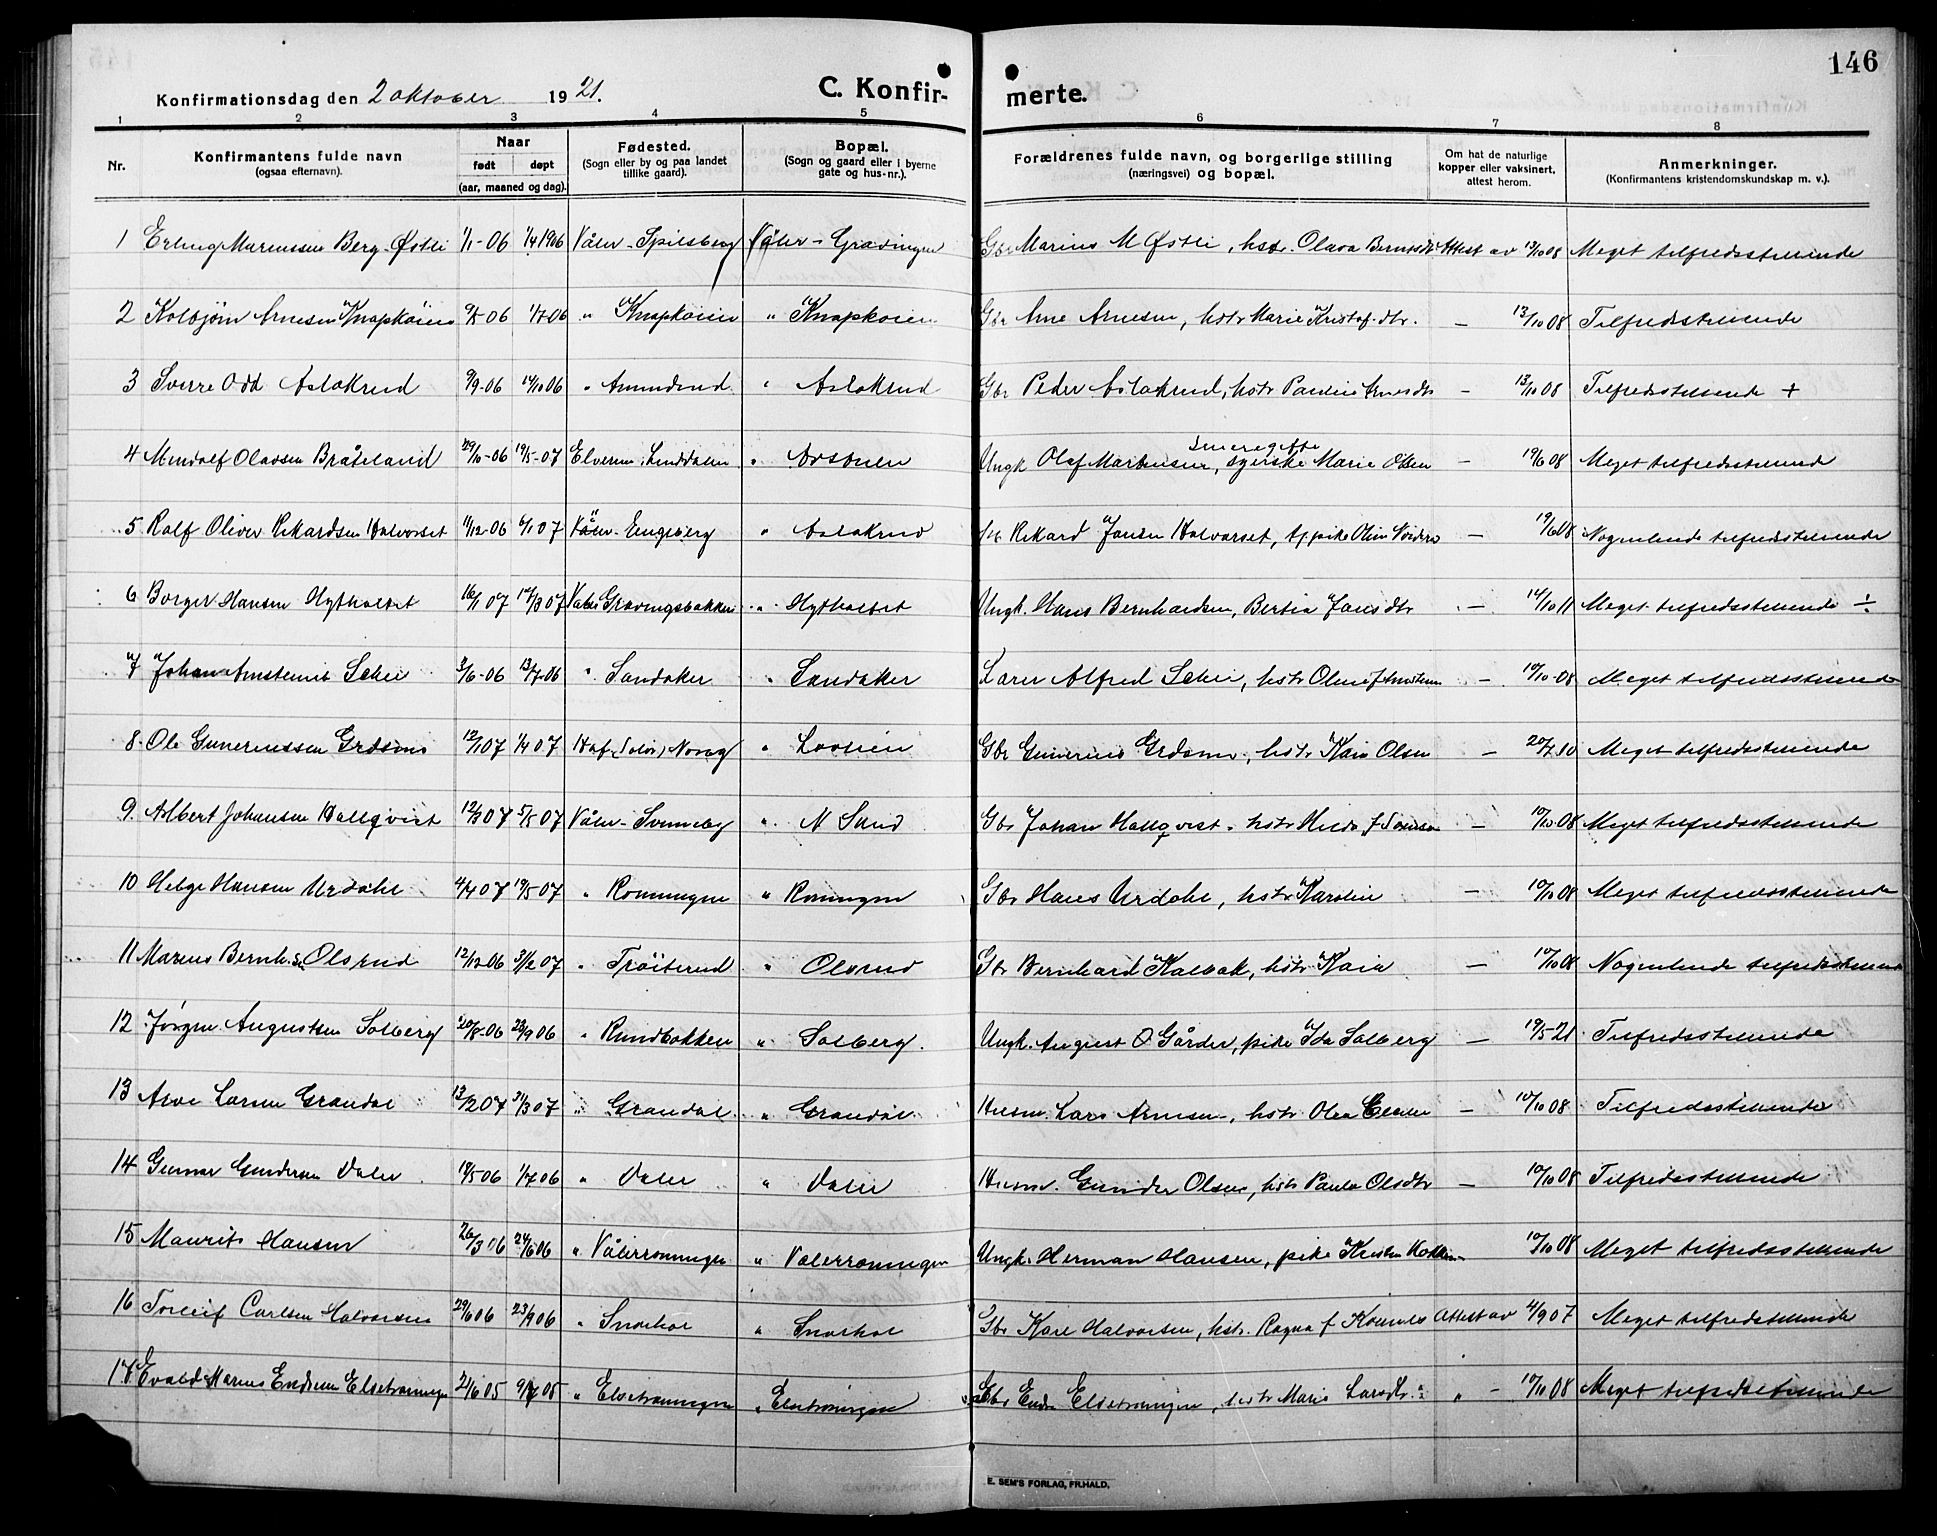 146
Konfirmationsdag den 2 oktober 1921. C. Konfir- merte.
1 2 3 4 5 6 7 8
Nr. Konfirmantens fulde navn (ogsaa efternavn). Naar født døpt (aar, maaned og dag). Fødested. (Sogn eller by og paa landet tillike gaard). Bopæl. (Sogn og gaard eller i byerne gate og hus-nr.). Forældrenes fulde navn, og borgerlige stilling (næringsvei) og bopæl. Om hat de naturlige kopper eller vaksinert, attest herom. Anmerkninger. (Konfirmantens kristendomskundskap m. v.).
1 Erling Mariussen Berg-Østli 1/1-06 1/4 1906 Våler-Spilsberg Våler-Gravingen Gbr Marius M Østli, hstr. Olava Berntsdtr Attest av 13/10 08 Meget tilfredsstillende
2 Kolbjörn Arnesen Knapköien 06 06 " Knapkoien " Knapkoien Gbr Arne Arnesen, hstr Marie Kristof.dtr. - 13/10 08 Tilfredsstillende
3 Sverre Odd Aslakrud 9/9-06 14/10 06 " Amundrud " Aslakrud Gbr Peder Aslakrud, hstr Pauline - 13/10 08 Tilfredsstillende +
4 Olavsen Bråteland 29/10-06 19/5-07 Elverum " Ungk Olaf Martinsen, Marie Olsen - 19/6 08 Meget tilfredsstillende
5 Rolf Oliver Rikardsen Halvorset 11/12-06 6/1 07 Våler-Engeberg " Aslakrud Rikard Jansen Halvorset, pike Oline - 19/6 08 Nogenlunde tilfredsstillende
6 Borger Hansen Hytholtet 16/1 07 17/3 07 Våler Gravingsbakken " Hytholtet Ungk. Hans Bernhardsen, Bertha Jansdtr - 14/10 11 Meget tilfredsstillende ÷
7 Johan Arnstein 3/6-06 13/7-06 " Sandaker " Sandaker Lærer Alfred hstr Oline f. - 10/10-08 Meget tilfredsstillende
8 Ole Gunerinssen 12/1 07 1/4 07 Hof (Solør) " Gbr Gunerius hstr Kari Olsen - Meget tilfredsstillende
9 Albert Johansen Hallqvist 12/3 07 5/5 07 Våler-Svenneby " N Sand Gbr Johan Hallqvist. hstr Hilda f - 10/10-08 Meget tilfredsstillende
10 Helge Hansen Urdahl 4/4 07 19/5 07 " Romningen " Roningen Gbr Hans Urdahl, hstr Karoline - 10/10 08 Meget tilfredsstillende
11 Marius Bernh.s. Olsrud 12/12-06 3/2 07 " Tröiterud " Olsrud Gbr Bernhard Kalbak, hstr Kaia - 10/10 08 Nogenlunde tilfredsstillende
12 Jörgen Augustsen Solberg 20/8-06 23/9 06 " Rundbakken " Solberg. Ungk. August O Gårder, pike Ida Solberg - 19/5-21 Tilfredsstillende
13 Arve Larsen Grandal 13/2 07 31/3 07 " Grandal " Grandal Husm. Lars Arnesen, hstr Olea - 10/10 08 Tilfredsstillende
14 Gunnar Gundersen Valer 19/5 06 1/7 06 " Valer " Valer Husm. Gunder Olsen, hstr Paula Olsdtr - 10/10 08 Tilfredsstillende
15 Maurits Hansen 26/3 06 24/6 06 " Vålerromingen " Valerromingen Ungk. Herman Hansen, pike - 10/10 08 Meget tilfredsstillende
16 Torleif Carlsen Halvorsen 29/6 06 23/9 06 " Snorhol " Snorhol Gbr Karl Halvorsen, hstr. Ragna f Attest av 4/9 07 Meget tilfredsstillende
17. Evald Marius Endresen Elsetromingen 21/6 05 9/7 05 " Elsetromingen " Elsetromingen Gbr Endre Elsetromingen, hstr Marie Larsdtr " - 10/11 08 Meget tilfredsstillende
E. SEM'S FORLAG, FR.HALD.